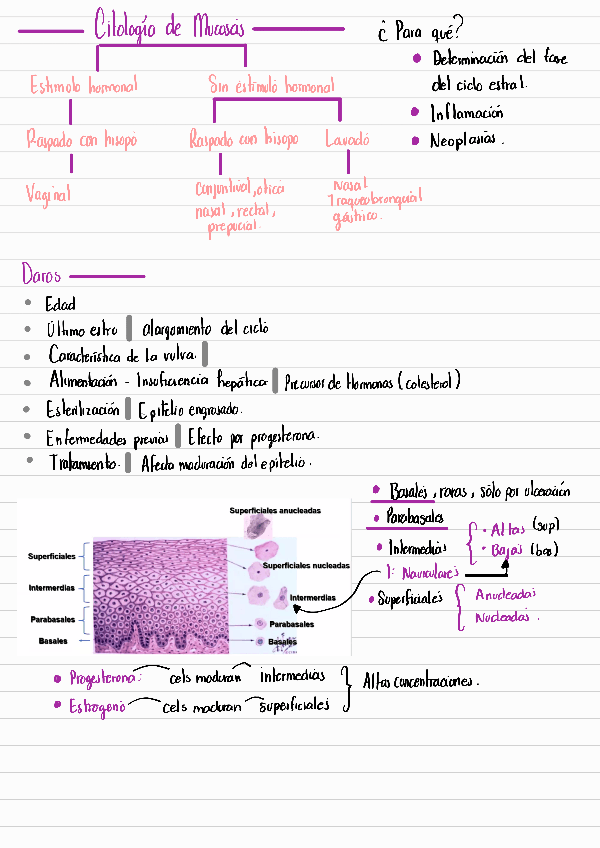 Citología de Mucosas
Estímulo hormonal
Sin estímulo hormonal
Raspado con hisopo
Raspado con hisopo
Lavado
Vaginal
Conjuntival, otica
nasal, rectal,
prepucial.
Nasal
Traqueobronquial
gástrico.
¿Para qué?
Determinación del fase
del ciclo estral.
Inflamación
Neoplasias.
Daros
Edad
Último estro | alargamiento del ciclo
Característica de la vulva. |
Alimentación - Insuficiencia hepática | Precursor de Hormonas (colesterol)
Esterilización | Epitelio engrosado.
Enfermedades previas | Efecto por progesterona.
Tratamiento. | Afecta maduración del epitelio.
Basales, raras, sólo por ulceración
Parabasales
Intermedias { · Altas (sup)
· Bajas (bas)
I: Naviculares
Superficiales { Anucleadas
Nucleadas.
Superficiales anucleadas
Superficiales
Superficiales nucleadas
Intermerdias
Intermerdias
Parabasales
Parabasales
Basales
Basales
Progesterona: cels maduran intermedias
Estrogeno cels maduran superficiales } Altas concentraciones.